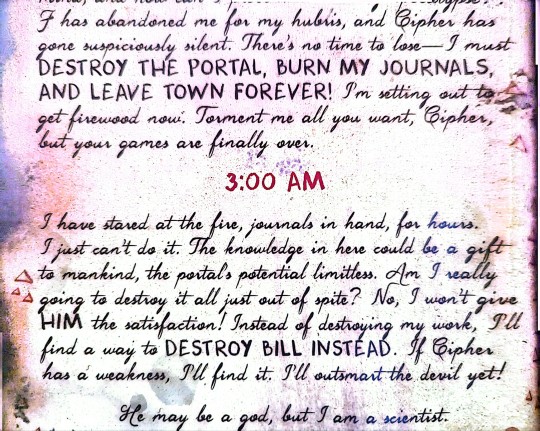 F has abandoned me for my hubris, and Cipher has
gone suspiciously silent. There's no time to lose—I must
DESTROY THE PORTAL, BURN MY JOURNALS,
AND LEAVE TOWN FOREVER! I'm setting out to
get firewood now. Torment me all you want, Cipher,
but your games are finally over.
3:00 AM
I have stared at the fire, journals in hand, for hours.
I just can't do it. The knowledge in here could be a gift
to mankind, the portal's potential limitless. Am I really
going to destroy it all just out of spite? No, I won't give
HIM the satisfaction! Instead of destroying my work, I'll
find a way to DESTROY BILL INSTEAD. If Cipher
has a weakness, I'll find it. I'll outsmart the devil yet!
He may be a god, but I am a scientist.